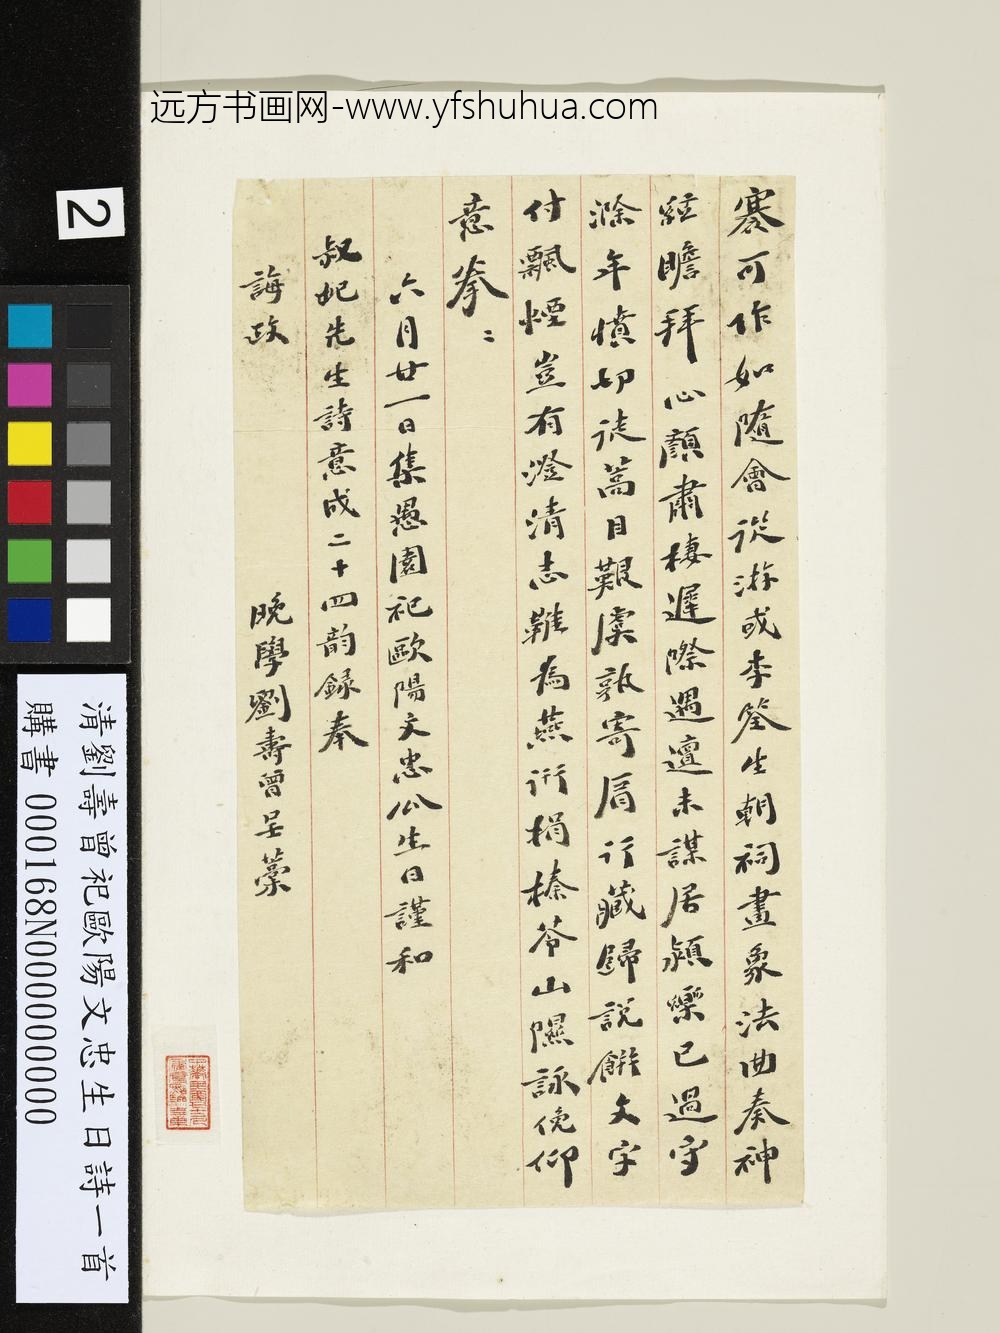 远方书画网-www.yfshuhua.com
2
寒可作如隨會從游或李筌生朝祠畫象法曲奏神
絃瞻拜心顏肅棲遲際遇邅未謀居潁樂已過守
滁年憤切徒蒿目艱虞孰寄肩行藏歸說餅文字
付飄煙豈有澄清志難為燕衎捐榛苓山隰詠俛仰
意拳〻
六月廿一日集愚園祀歐陽文忠公生日謹和
叔妃先生詩意成二十四韵録奉
誨政
晚學劉壽曾呈藁
清劉壽曾祀歐陽文忠生日詩一首
購書 000168N000000000